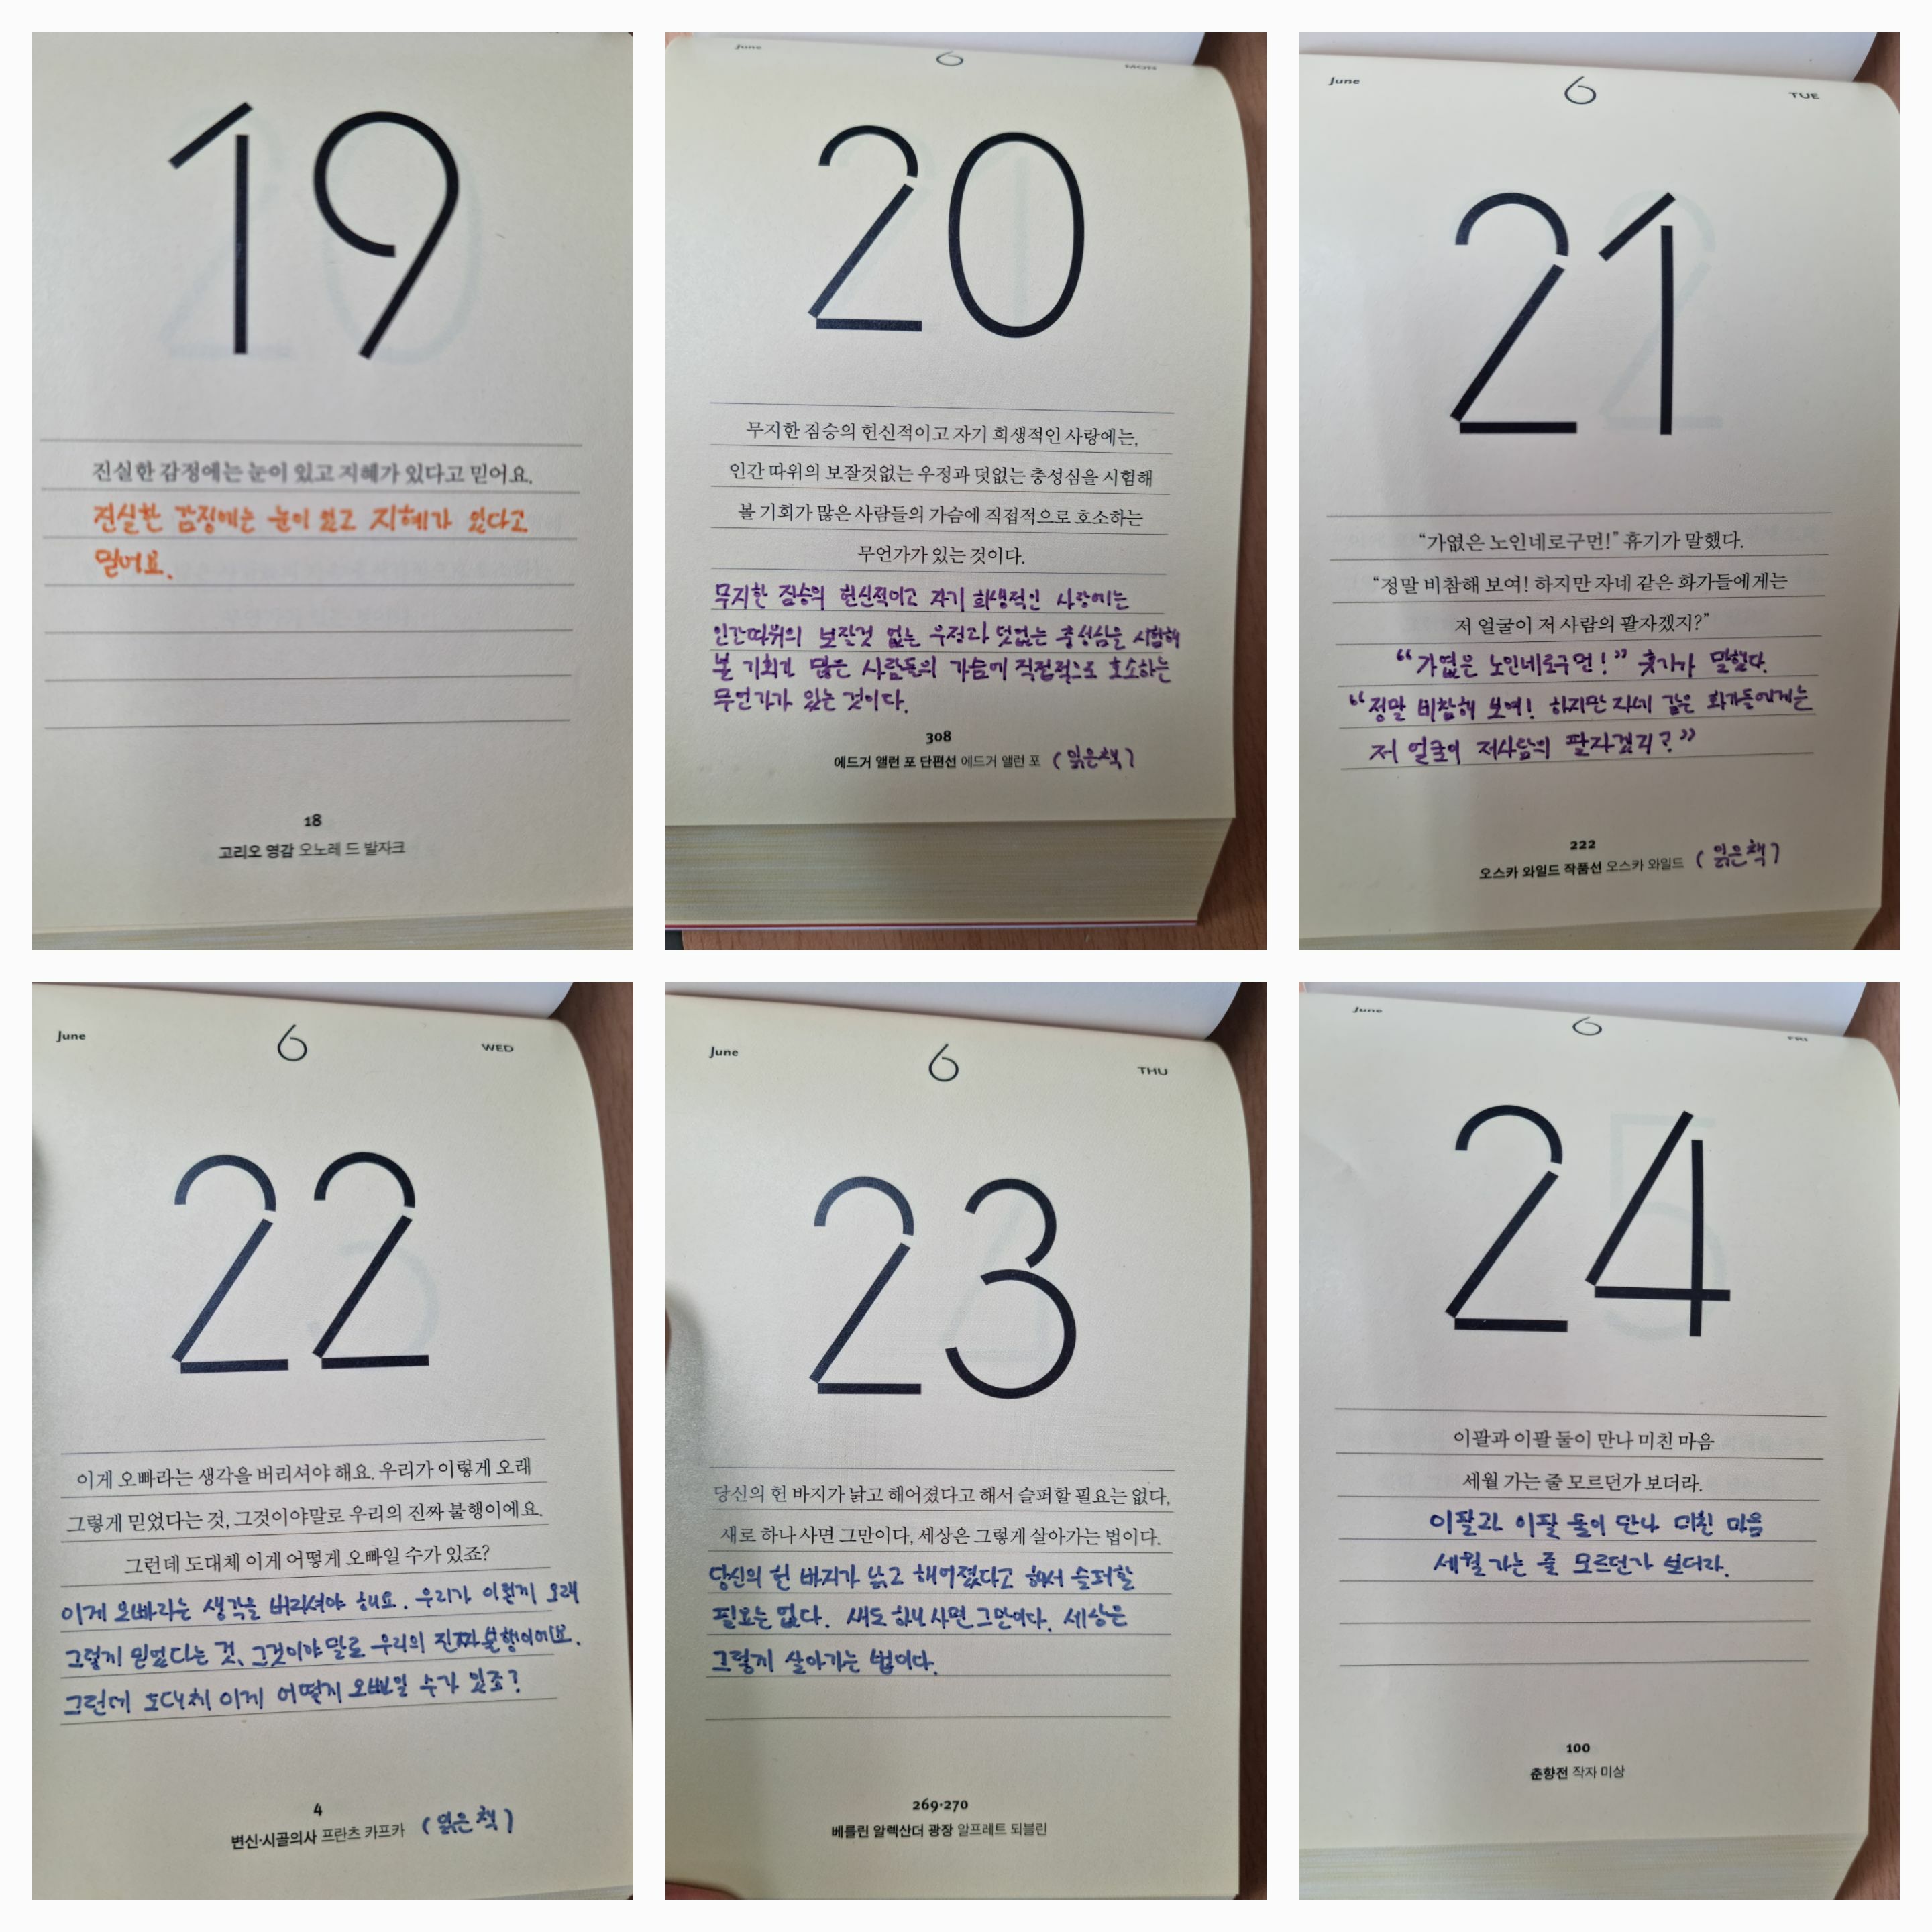 19
진실한 감정에는 눈이 있고 지혜가 있다고 믿어요.
진실한 감정에는 눈이 있고 지혜가 있다고
믿어요.
18
고리오 영감 오노레 드 발자크
June 6 MON
20
무지한 짐승의 헌신적이고 자기 희생적인 사랑에는,
인간 따위의 보잘것없는 우정과 덧없는 충성심을 시험해
볼 기회가 많은 사람들의 가슴에 직접적으로 호소하는
무언가가 있는 것이다.
무지한 짐승의 헌신적이고 자기 희생적인 사랑에는
인간따위의 보잔것 없는 우정과 덧없는 충성심을 시험해
볼 기회가 많은 사람들의 가슴에 직접적으로 호소하는
무언가가 있는 것이다.
308
에드거 앨런 포 단편선 에드거 앨런 포 (읽은책)
June 6 TUE
21
“가엾은 노인네로구먼!” 휴기가 말했다.
“정말 비참해 보여! 하지만 자네 같은 화가들에게는
저 얼굴이 저 사람의 팔자겠지?”
“가엾은 노인네로구먼!” 휴기가 말했다.
“정말 비참해 보여! 하지만 자네 같은 화가들에게는
저 얼굴이 저사람의 팔자겠지?”
222
오스카 와일드 작품선 오스카 와일드 (읽은책)
June 6 WED
22
이게 오빠라는 생각을 버리셔야 해요. 우리가 이렇게 오래
그렇게 믿었다는 것, 그것이야말로 우리의 진짜 불행이에요.
그런데 도대체 이게 어떻게 오빠일 수가 있죠?
이게 오빠라는 생각을 버리셔야 해요. 우리가 이렇게 오래
그렇게 믿었다는 것, 그것이야 말로 우리의 진짜 불행이에요.
그런데 도대체 이게 어떻게 오빠일 수가 있죠?
4
변신·시골의사 프란츠 카프카 (읽은책)
June 6 THU
23
당신의 헌 바지가 낡고 해어졌다고 해서 슬퍼할 필요는 없다,
새로 하나 사면 그만이다, 세상은 그렇게 살아가는 법이다.
당신의 헌 바지가 낡고 해어졌다고 해서 슬퍼할
필요는 없다. 새도 하나 사면 그만이다. 세상은
그렇게 살아가는 법이다.
269·270
베를린 알렉산더 광장 알프레트 되블린
June 6 FRI
24
이팔과 이팔 둘이 만나 미친 마음
세월 가는 줄 모르던가 보더라.
이팔과 이팔 둘이 만나 미친 마음
세월 가는 줄 모르던가 보더라.
100
춘향전 작자 미상